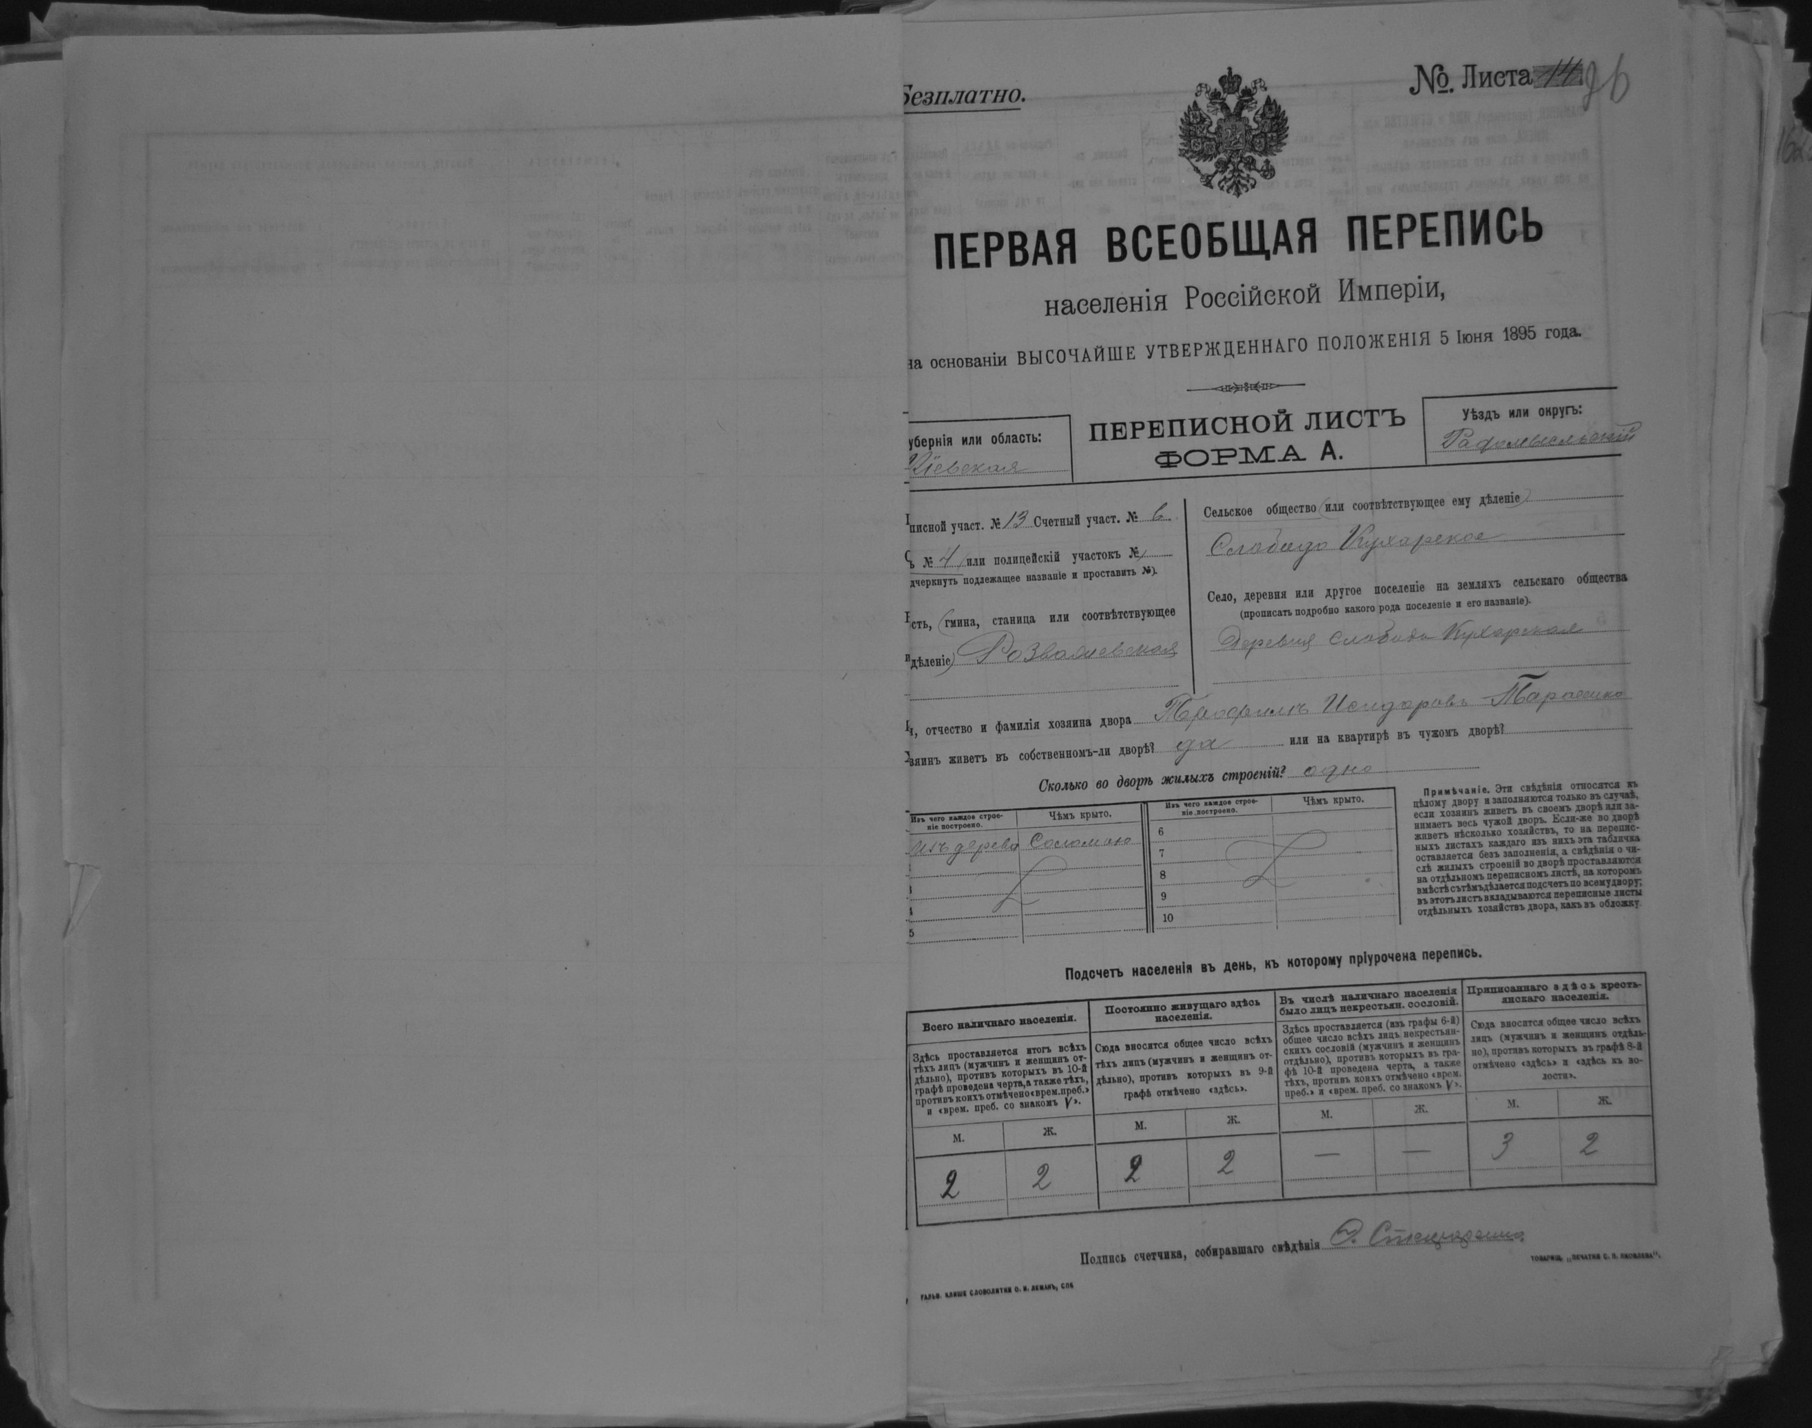 Безплатно.
№. Листа 14 96
ПЕРВАЯ ВСЕОБЩАЯ ПЕРЕПИСЬ
населенія Россійской Имперіи,
на основаніи ВЫСОЧАЙШЕ УТВЕРЖДЕННАГО ПОЛОЖЕНІЯ 5 Іюня 1895 года.
убернія или область:
Кіевская
ПЕРЕПИСНОЙ ЛИСТЪ
ФОРМА А.
Уѣздъ или округъ:
Радомысльскій
писной участ. № 13 Счетный участ. № 6
ъ № 4 или полицейскій участокъ №
дчеркнуть подлежащее названіе и проставить №).
сть, (гмина, станица или соотвѣтствующее
дѣленіе) Розважевская
Сельское общество (или соотвѣтствующее ему дѣленіе)
Слобидо Кухарское
Село, деревня или другое поселеніе на земляхъ сельскаго общества
(прописать подробно какого рода поселеніе и его названіе).
Деревня Слобида Кухарская
, отчество и фамилія хозяина двора Трофимъ Исидоровъ Тарасенко
зяинъ живетъ въ собственномъ-ли дворѣ? да или на квартирѣ въ чужомъ дворѣ?
Сколько во дворѣ жилыхъ строеній? одно
Изъ чего каждое строе-
ніе построено.
Чѣмъ крыто.
Изъ чего каждое строе-
ніе построено.
Чѣмъ крыто.
изъ дерева Соломою
4
5
6
7
8
9
10
Примѣчаніе. Эти свѣдѣнія относятся къ
цѣлому двору и заполняются только въ случаѣ,
если хозяинъ живетъ въ своемъ дворѣ или за-
нимаетъ весь чужой дворъ. Если-же во дворѣ
живетъ нѣсколько хозяйствъ, то на перепис-
ныхъ листахъ каждаго изъ нихъ эта табличка
оставляется безъ заполненія, а свѣдѣнія о чи-
слѣ жилыхъ строеній во дворѣ проставляются
на отдѣльномъ переписномъ листѣ, на которомъ
вмѣстѣ съ тѣмъ дѣлается подсчетъ по всему двору;
въ этотъ листъ вкладываются переписные листы
отдѣльныхъ хозяйствъ двора, какъ въ обложку
Подсчетъ населенія въ день, къ которому пріурочена перепись.
Всего наличнаго населенія.
Здѣсь проставляется итогъ всѣхъ
тѣхъ лицъ (мужчинъ и женщинъ от-
дѣльно), противъ которыхъ въ 10-й
графѣ проведена черта, а также тѣхъ,
противъ коихъ отмѣчено «врем. преб.»
и «врем. преб. со знакомъ V».
М. Ж.
2 2
Постоянно живущаго здѣсь
населенія.
Сюда вносится общее число всѣхъ
тѣхъ лицъ (мужчинъ и женщинъ от-
дѣльно), противъ которыхъ въ 9-й
графѣ отмѣчено «здѣсь».
М. Ж.
2 2
Въ числѣ наличнаго населенія
было лицъ некрестьян. сословій.
Здѣсь проставляется (изъ графы 6-й)
общее число всѣхъ лицъ некрестьян-
скихъ сословій (мужчинъ и женщинъ
отдѣльно), противъ которыхъ въ гра-
фѣ 10-й проведена черта, а также
тѣхъ, противъ коихъ отмѣчено «врем.
преб.» и «врем. преб. со знакомъ V».
М. Ж.
— —
Приписаннаго здѣсь кресть-
янскаго населенія.
Сюда вносится общее число всѣхъ
лицъ (мужчинъ и женщинъ отдѣль-
но), противъ которыхъ въ графѣ 8-й
отмѣчено «здѣсь» и «здѣсь къ во-
лости».
М. Ж.
3 2
Подпись счетчика, собиравшаго свѣдѣнія
ГАЛЬВ. КЛИШЕ СЛОВОЛИТНИ О. И. ЛЕМАНЪ, СПБ
ТОВАРИЩ. „ПЕЧАТНЯ С. П. ЯКОВЛЕВА".